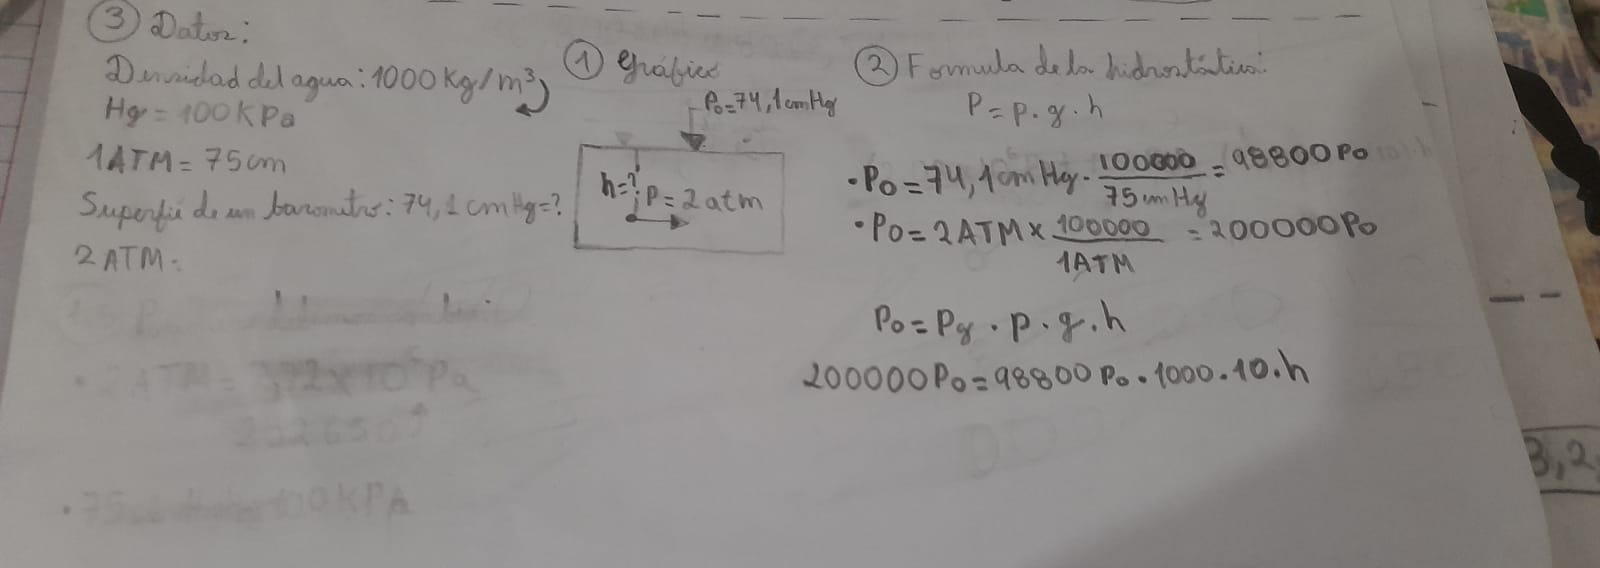 ③ Datos:
Densidad del agua: 1000 Kg/m³
Hg = 100 K Pa
1 ATM = 75 cm
Superfie de un barometro: 74,1 cm Hg = ?
2 ATM.
① Gráfico
Po = 74,1 cm Hg
h = ?
P = 2 atm
② Formula de la hidrostática:
P = p . g . h
. Po = 74,1 cm Hg . 100000 / 75 cm Hg = 98800 Po
. Po = 2 ATM x 100000 / 1 ATM = 200000 Po
Po = Pg . p . g . h
200000 Po = 98800 Po . 1000 . 10 . h
3,2